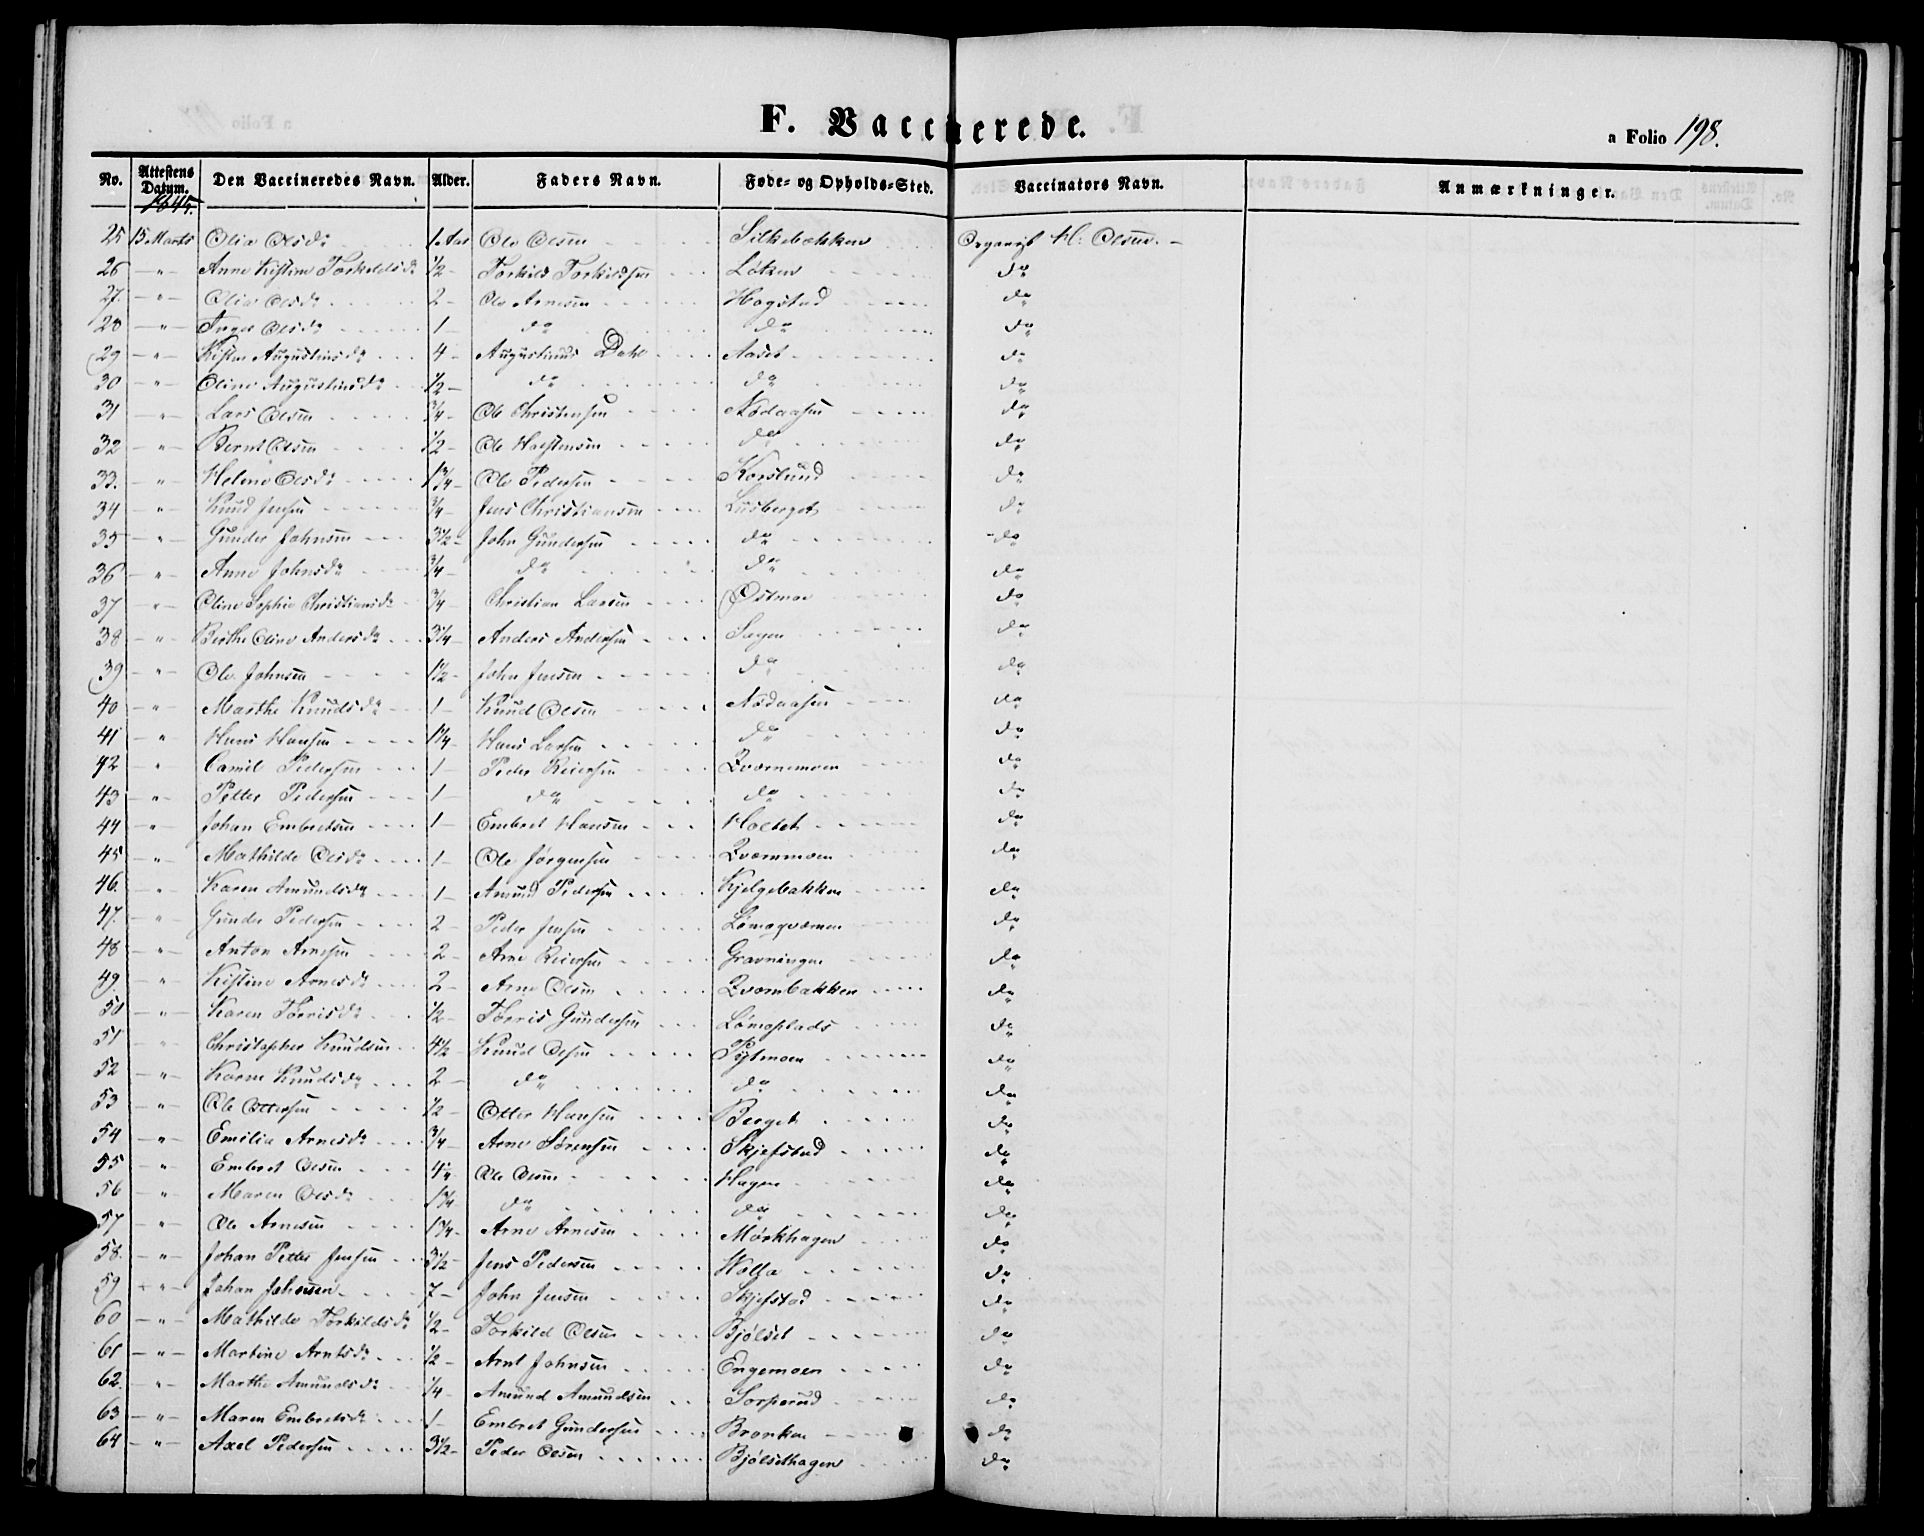 F. Vaccinerede.
a Folio 198.
No. Attestens Datum. Den Vaccineredes Navn. Alder. Faders Navn. Føde- og Opholds-Sted. Vaccinators Navn. Anmærkninger.
1845.
25 15 Marts Olia Olsdr 1 Aar Ole Olsen Silkebækken H: Olsen.
26 -"- Anne Kistine Torkildsdr 1/2 - Torkild Torkildsen Løken do
27. -"- Olia Olsdr 2 - Ole Arnesen Hogstad do
28 -"- Inger Olsdr 1 - do do do
29 -"- Kisten Augustinsdr 4 - Augustinus Dahl Aaset do
30 -"- Oline Augustinsdr 1/2 - do do do
31 -"- Lars Olsen 3/4 - Ole Christensen Nødaasen do
32 -"- Bernt Olsen 1/2 - Ole Halstensen do do
33. -"- Helene Olsdr 1 3/4 - Ole Pedersen Korslund do
34 -"- Knud Jensen 3/4 - Jens Christiansen Lusberget do
35 -"- Gunder Johnsen 3 1/2 - John Gundersen do do
36 -"- Anne Johnsdr 3/4 - do do do
37 -"- Oline Sophie Christiansdr 3/4 - Christian Larsen Østmoe do
38 -"- Berthe Oline Andersdr 3 1/4 - Anders Andersen Sagen do
39 -"- Ole Johnsen 1 1/2 - John Jensen do do
40 -"- Marthe Knudsdr 1 - Knud Olsen Nødaasen do
41 -"- Hans Hansen 1 1/4 - Hans Larsen do do
42 " Camil Pedersen 1 - Peder Reiersen Qværnemoen do
43 -"- Petter Pedersen 1 - do do do
44 -"- Johan Embretsen 1 - Embret Hansen Holtet do
45 -"- Mathilde Olsdr 1 - Ole Jørgensen Qværnmoen do
46. -"- Karen Amundsdr 1 - Amund Pedersen Kjelgebakken do
47. -"- Gunder Pedersen 2 - Peder Jensen Lømoqværnen do
48 -"- Anton Arnesen 2 - Arne Reiersen Gravningen do
49. -"- Kistine Arnesdr 2 - Arne Olsen Qværnbakken do
50 -"- Karen Torrisdr 1/2 - Torris Gundersen Lømoplads do
51 -"- Christopher Knudsen 4 1/2 - Knud Olsen Pytmoen do
52 -"- Karen Knudsdr 2 - do do do
53 -"- Ole Ottersen 1/2 - Otter Hansen Berget do
54 -"- Emilie Arnesdr 3/4 - Arne Sørensen Skjefstad do
55 -"- Embret Olsen Ole Olsen Hagen do
56 -"- Maren Olsdr 1 3/4 do do do
57 -"- Ole Arnesen 1 3/4 - Arne Arnesen Mørkhagen do
58. -"- Johan Petter Jensen 3 1/2 - Jens Pedersen Holla do
59 -"- Johan Johnsen 7 - John Jensen Skjefstad do
60 -"- Mathilde Torkildsdr 1/2 - Torkild Olsen Bjølset do
61 -"- Martine Arntsdr 1/2 - Arnt Johnsen Engemoen do
62. -"- Marthe Amundsdr 1/4 - Amund Amundsen Sorperud do
63 -"- Maren Embretsdr 1 - Embret Gundersen Bronken do
64 -"- Axel Pedersen 3 1/2 - Peder Olsen Bjølsethagen do